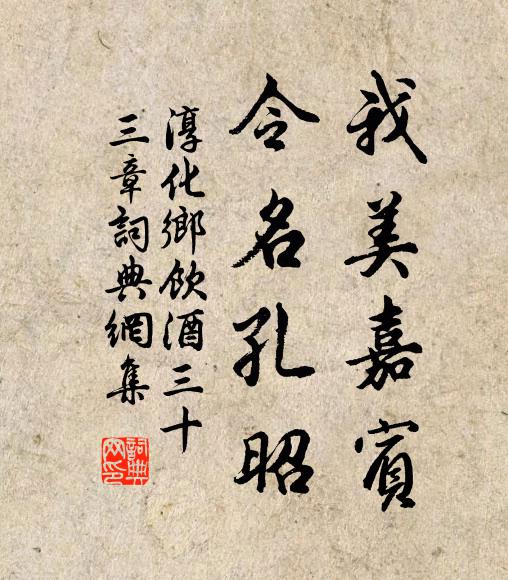 我美嘉賓
令名孔昭
淳化鄉飲酒三十
三章詞典網集
詞典网印